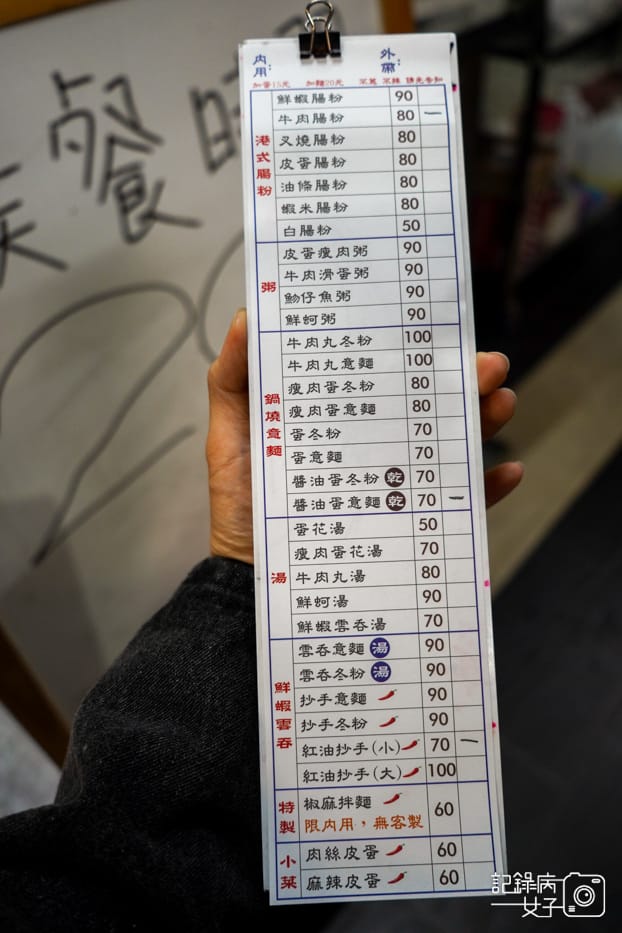 餐
內用：
外帶：
加蛋15元 加麵20元 不蔥 不辣 請先告知
港式腸粉
鮮蝦腸粉 90
牛肉腸粉 80 一
叉燒腸粉 80
皮蛋腸粉 80
油條腸粉 80
蝦米腸粉 80
白腸粉 50
粥
皮蛋瘦肉粥 90
牛肉滑蛋粥 90
魩仔魚粥 90
鮮蚵粥 90
鍋燒意麵
牛肉丸冬粉 100
牛肉丸意麵 100
瘦肉蛋冬粉 80
瘦肉蛋意麵 80
蛋冬粉 70
蛋意麵 70
醬油蛋冬粉 乾 70
醬油蛋意麵 乾 70 一
湯
蛋花湯 50
瘦肉蛋花湯 70
牛肉丸湯 80
鮮蚵湯 90
鮮蝦雲吞湯 70
鮮蝦雲吞
雲吞意麵 湯 90
雲吞冬粉 湯 90
抄手意麵 90
抄手冬粉 90
紅油抄手(小) 70 一
紅油抄手(大) 100
特製
椒麻拌麵 60
限內用，無客製
小菜
肉絲皮蛋 60
麻辣皮蛋 60
記錄病
女子